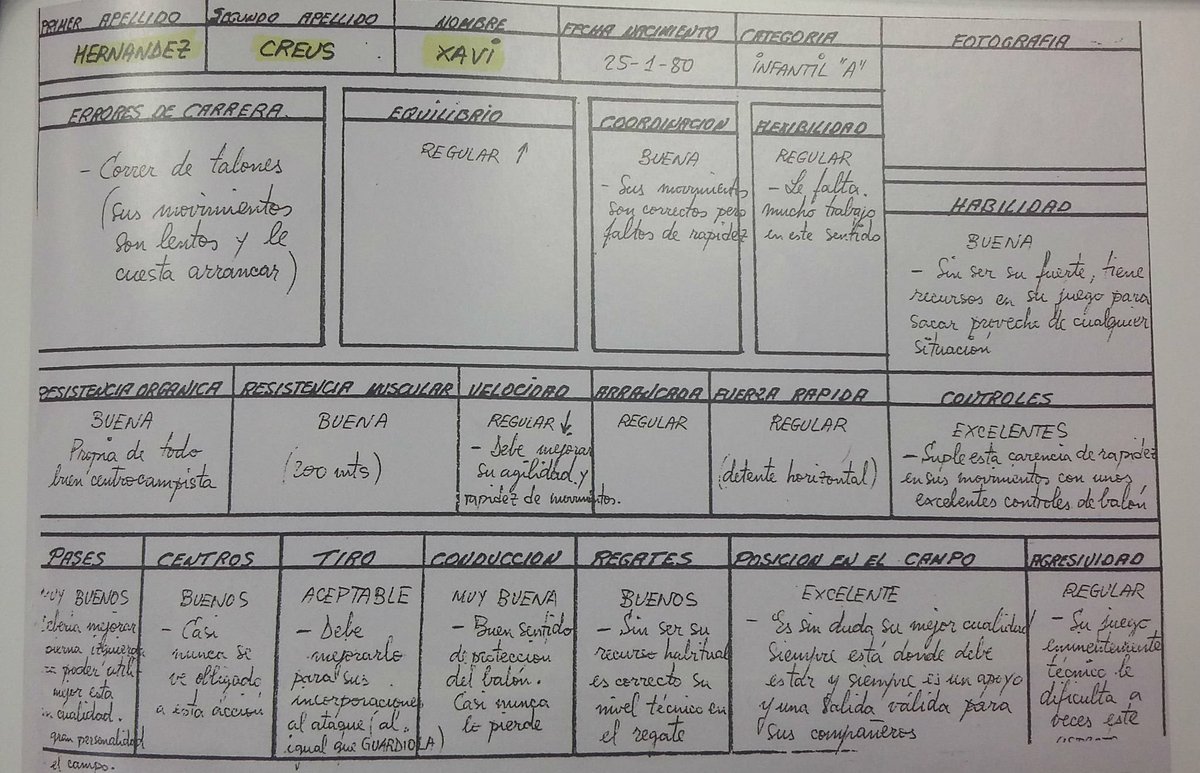 PRIMER APELLIDO
HERNANDEZ
SEGUNDO APELLIDO
CREUS
NOMBRE
XAVI
FECHA NACIMIENTO
25-1-80
CATEGORIA
INFANTIL "A"
FOTOGRAFIA
ERRORES DE CARRERA.
- Correr de talones
(sus movimientos
son lentos y le
cuesta arrancar)
EQUILIBRIO
REGULAR ↑
COORDINACION
BUENA
- Sus movimientos
son correctos pero
faltos de rapidez
FLEXIBILIDAD
REGULAR
- Le falta
mucho trabajo
en este sentido
HABILIDAD
BUENA
- Sin ser su fuerte, tiene
recursos en su juego para
sacar provecho de cualquier
situación
RESISTENCIA ORGANICA
BUENA
Propia de todo
buen centrocampista
RESISTENCIA MUSCULAR
BUENA
(200 mts)
VELOCIDAD
REGULAR ↓
- Debe mejorar
su agilidad y
rapidez de movimientos.
ARRANCADA
REGULAR
FUERZA RAPIDA
REGULAR
(detente horizontal)
CONTROLES
EXCELENTES
- Suple esta carencia de rapidez
en sus movimientos con unos
excelentes controles de balón
PASES
MUY BUENOS
debería mejorar
pierna izquierda
poder
mejor esta
cualidad.
gran personalidad
el campo.
CENTROS
BUENOS
- Casi
nunca se
ve obligado
a esta acción
TIRO
ACEPTABLE
- Debe
mejorarlo
para sus
incorporaciones
al ataque (al
igual que GUARDIOLA)
CONDUCCION
MUY BUENA
- Buen sentido
de protección
del balón.
Casi nunca
lo pierde
REGATES
BUENOS
- Sin ser su
recurso habitual
es correcto su
nivel técnico en
el regate
POSICION EN EL CAMPO
EXCELENTE
- Es sin duda su mejor cualidad
siempre está donde debe
estar y siempre es un apoyo
y una salida válida para
sus compañeros
AGRESIVIDAD
REGULAR
- Su juego
eminentemente
técnico le
dificulta a
veces este